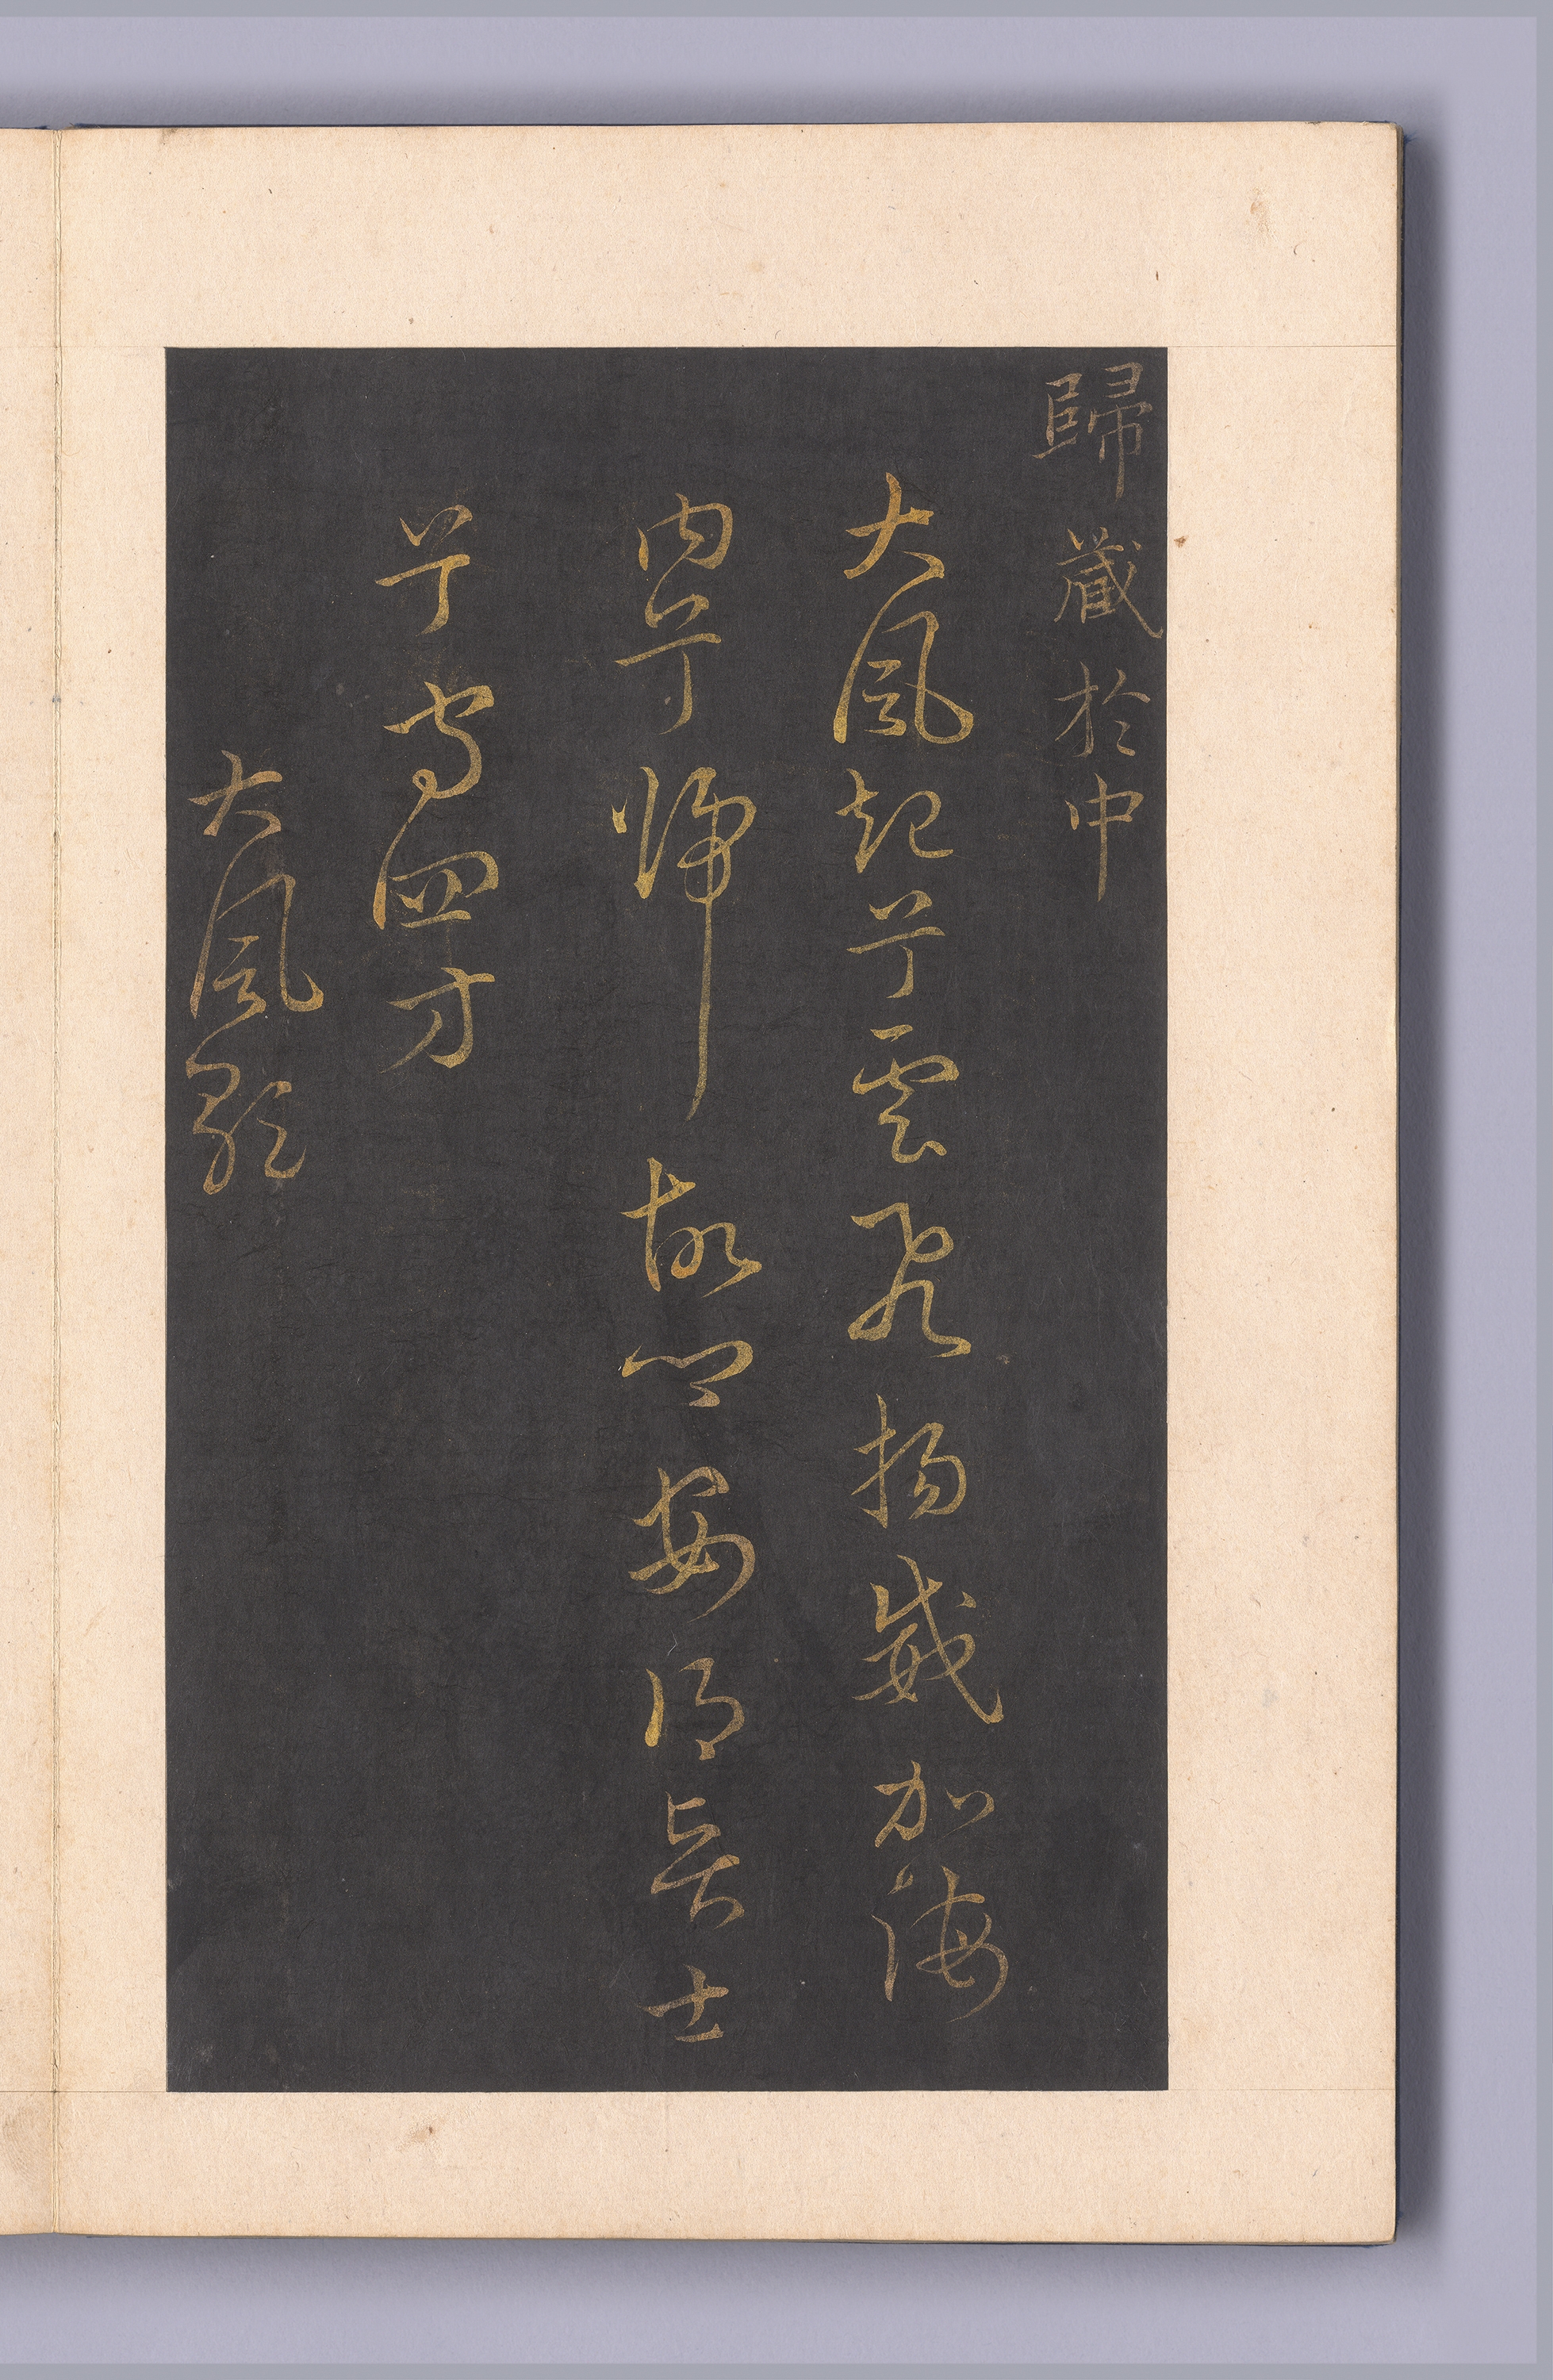 歸藏於中
大風起兮雲飛揚威加海
內兮歸故鄉安得長士
兮守四方
大風歌